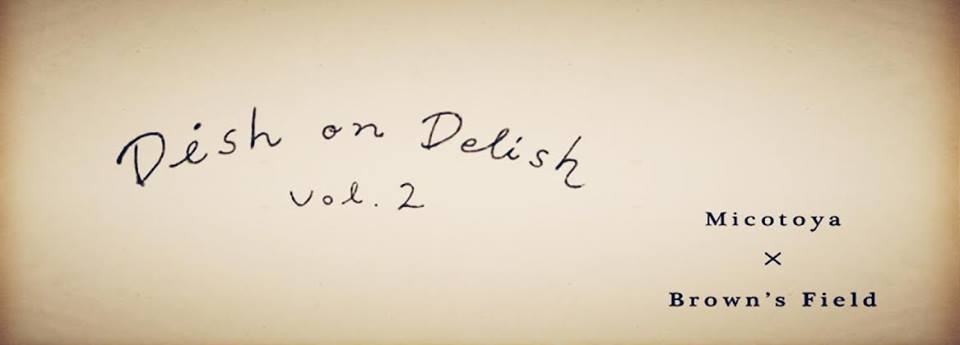 Dish on Delish
vol. 2
Micotoya
×
Brown's Field